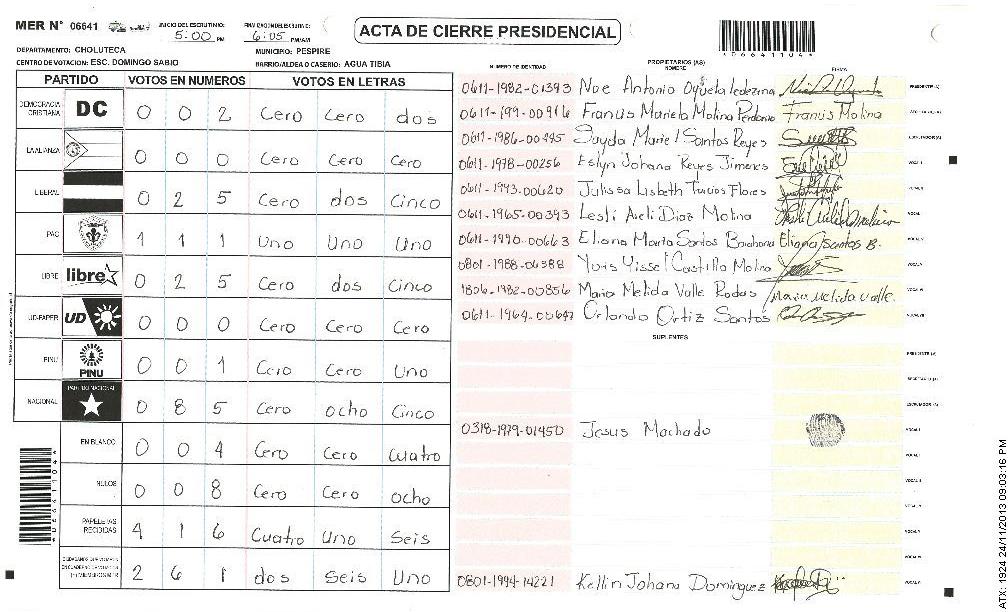 MER Nº 06641
INICIO DEL ESCRUTINIO: 5:00 PM
FINALIZACION DEL ESCRUTINIO: 6:05 PM/AM
ACTA DE CIERRE PRESIDENCIAL
*06641104*
DEPARTAMENTO: CHOLUTECA
MUNICIPIO: PESPIRE
CENTRO DE VOTACION: ESC. DOMINGO SABIO
BARRIO/ALDEA O CASERIO: AGUA TIBIA
PARTIDO VOTOS EN NUMEROS VOTOS EN LETRAS
DEMOCRACIA CRISTIANA DC 0 0 2 Cero Cero dos
LA ALIANZA 0 0 0 Cero Cero Cero
LIBERAL 0 2 5 Cero dos Cinco
PAC 1 1 1 Uno Uno Uno
LIBRE libre 0 2 5 Cero dos Cinco
UD-FAPER UD 0 0 0 Cero Cero Cero
PINU PINU 0 0 1 Cero Cero Uno
NACIONAL PARTIDO NACIONAL 0 8 5 Cero ocho Cinco
EN BLANCO 0 0 4 Cero Cero Cuatro
NULOS 0 0 8 Cero Cero ocho
PAPELETAS RECIBIDAS 4 1 6 Cuatro Uno Seis
CIUDADANOS QUE VOTARON EN CUADERNO DE VOTACION (+) MIEMBROS MER 2 6 1 dos Seis Uno
NUMERO DE IDENTIDAD PROPIETARIOS (AS) NOMBRE FIRMA
0611-1982-01393 Noe Antonio Oyuela ledezma PRESIDENTE (A)
0611-199-00916 Francis Mariela Molina Perdomo Francis Molina
0611-1986-00445 Suyda Marie l Santos Reyes
0611-1978-00256 Eslyn Johana Reyes Jimenes VOCAL I
0611-1993-00620 Julissa Lisbeth Turcios Flores
0611-1965-00393 Lesli Areli Diaz Molina
0611-1990-00663 Eliana Maria Santos Barahona Eliana Santos B.
0801-1988-06388 Yuris Yissel Castillo Molina
1806-1982-00856 Maria Melida Valle Rodas Maria Melida Valle.
0611-1964-00647 Orlando Ortiz Santos
SUPLENTES
PRESIDENTE (A)
SECRETARIO (A)
ESCRUTADOR (A)
0318-1979-01450 Jesus Machado VOCAL I
0801-1994-14221 Kellin Johana Dominguez
*06641104*
ATX: 1924 24/11/2013 09:03:16 PM